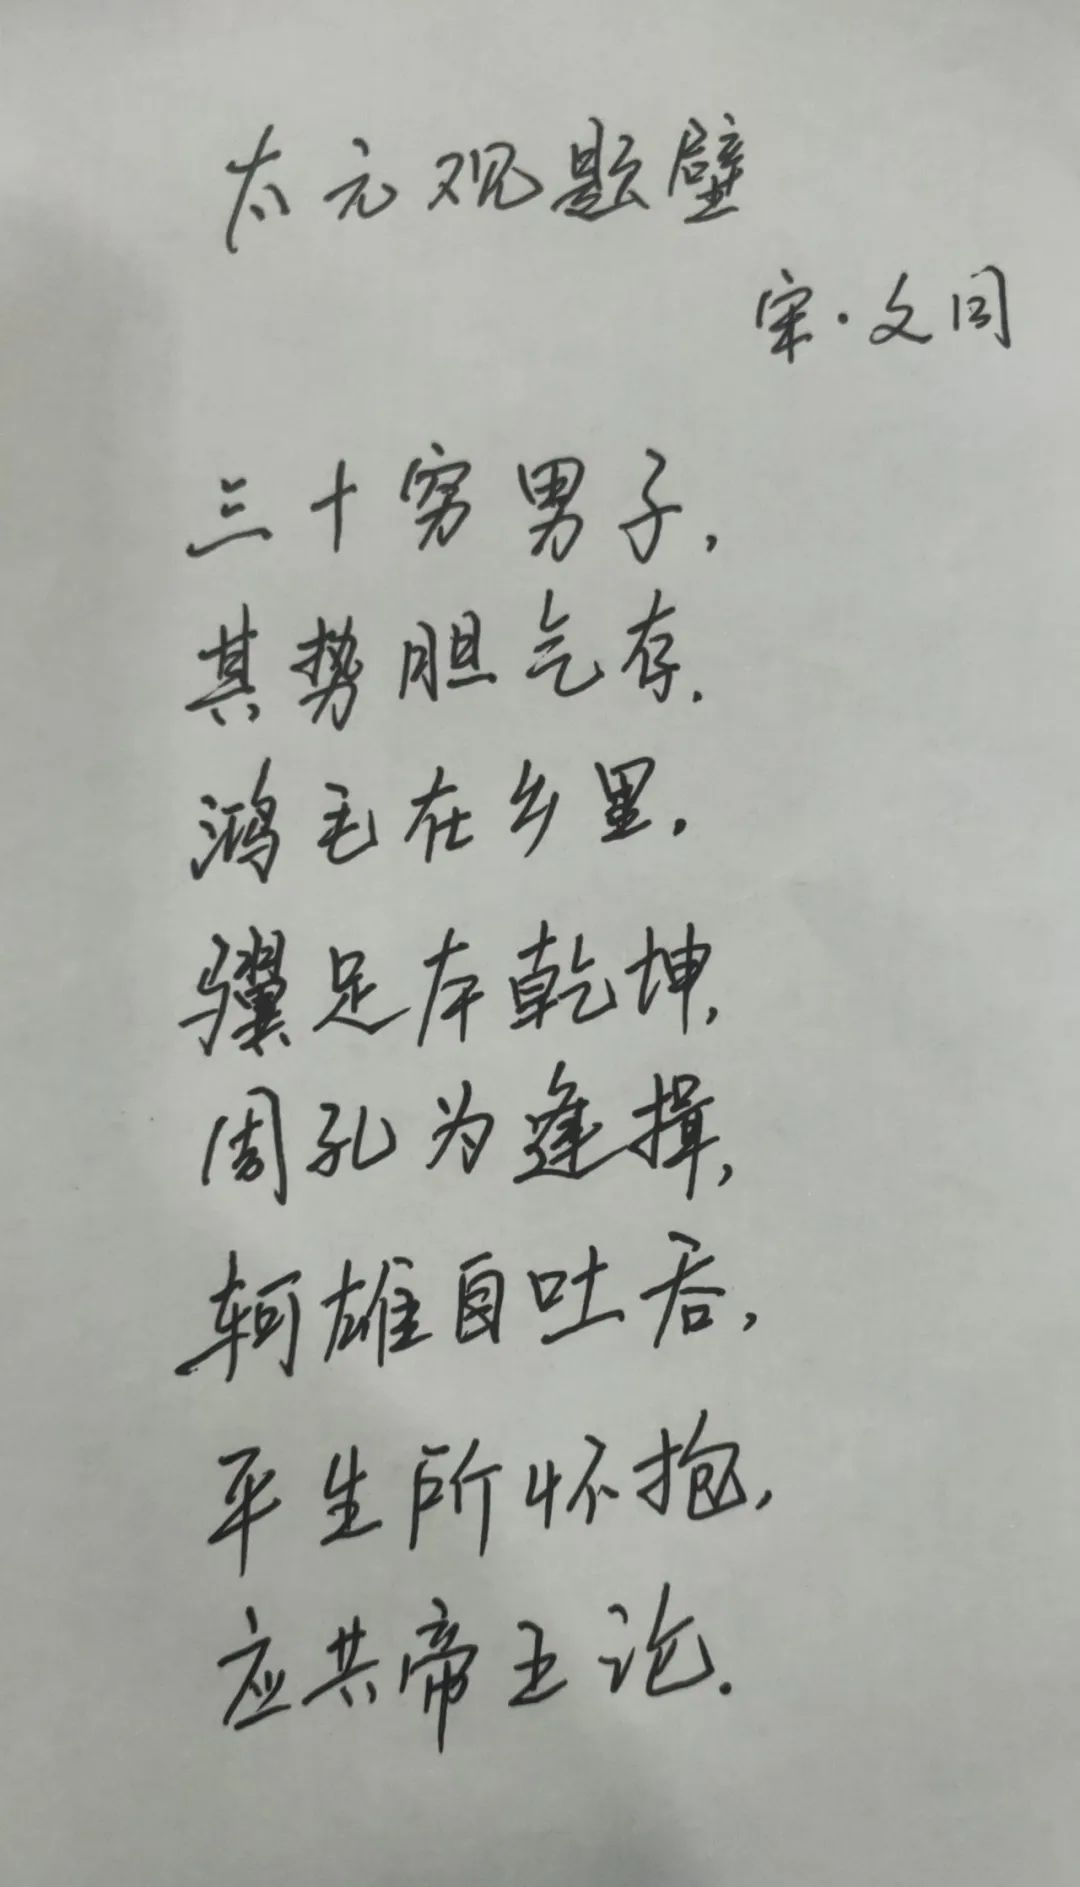 太元观题壁
宋·文同
三十穷男子，
其势胆气存.
鸿毛在乡里，
骥足本乾坤，
周孔为逢揖，
轲雄自吐吞，
平生所怀抱，
应共帝王论.